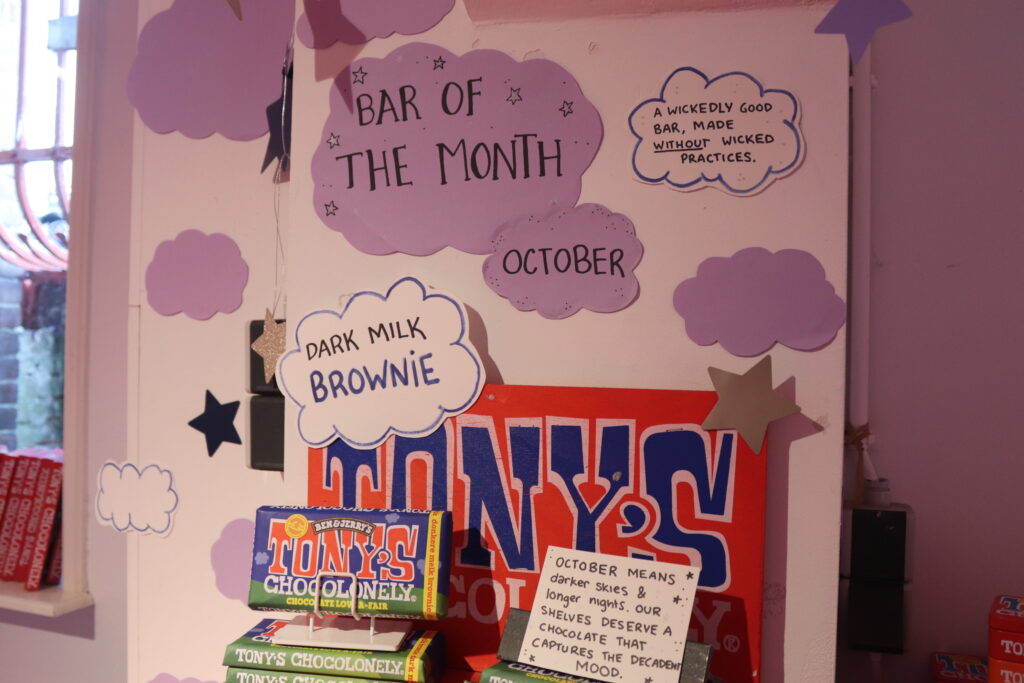 BAR OF
THE MONTH
A WICKEDLY GOOD
BAR, MADE
WITHOUT WICKED
PRACTICES.
OCTOBER
DARK MILK
BROWNIE
TONY'S
BEN & JERRY'S
TONY'S
CHOCOLONELY
CHOCOLATE LOVE A-FAIR
donkere melk brownie
TONY'S CHOCOLONELY
OCTOBER MEANS
darker skies &
longer nights. OUR
SHELVES DESERVE A
CHOCOLATE THAT
CAPTURES THE DECADENT
MOOD.